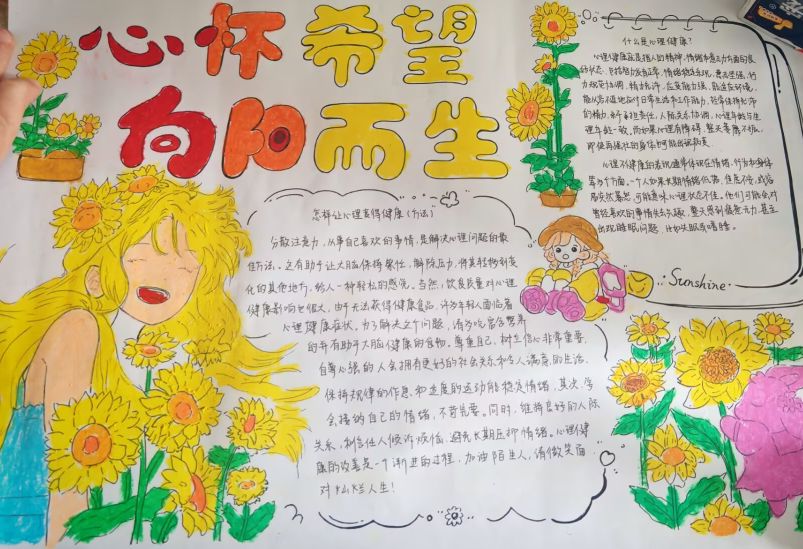 心怀希望
向阳而生
什么是心理健康?
心理健康就是指人的精神、情绪和意志力方面的良
好状态,包括智力发育正常,情绪稳定乐观,意志坚强,行
力规范协调,精力充沛,应变能力强,能适应环境,
能从容不迫地应付日常生活和工作压力,经常保持充沛
的精力,乐于承担责任,人际关系协调,心理年龄与生
理年龄一致,
即使再强壮的身体也可能出现衰
心理不健康的表现通常体现在情绪、行为和身体
等多个方面。一个人如果长期情绪低落、焦虑不安,或
可能意味心理状态不佳。他们可能会对
曾经喜欢的事情失去兴趣,整天感到疲惫无力,甚至
出现睡眠问题,比如失眠或嗜睡。
Sunshine·
怎样让心理变得健康(方法)
分散注意力,从事自己喜欢的事情,是解决心理问题的最
佳方法。这有助于让大脑保持繁忙,解除压力,将其转移到变
化的其他地方,给人一种轻松的感觉。当然,饮食质量对心理
健康影响也很大,由于无法获得健康食品,许多年轻人面临着
心理健康症状。为了解决这个问题,请多吃富含营养
的年有助于大脑健康的食物。尊重自己,树立信心非常重要,
自尊心强的人会拥有更好的社会关系和令人满意的生活。
保持规律的作息,和适度的运动能稳定情绪,其次,学
会接纳自己的情绪,不苛责。同时,维持良好的人际
关系,树信任人倾诉烦恼,避免长期压抑情绪。心理健
康的改善是一个渐进的过程,加油陌生人,请微笑面
对灿烂人生!